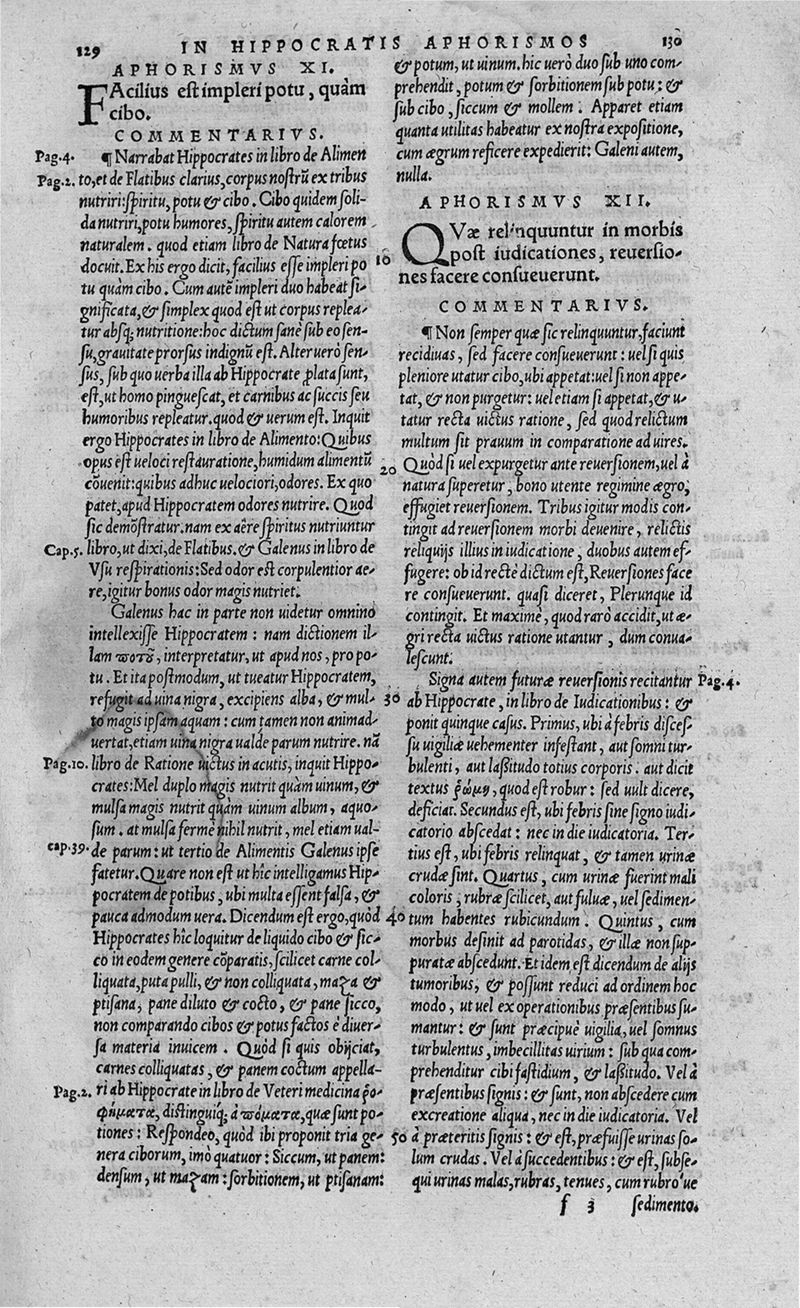 129 IN HIPPOCRATIS APHORISMOS 130
APHORISMVS XI.
FAcilius est impleri potu, quàm
cibo.
COMMENTARIVS.
Pag.4. ¶ Narrabat Hippocrates in libro de Alimen
Pag.2. to, et de Flatibus clarius, corpus nostrũ ex tribus
nutriri: spiritu, potu & cibo. Cibo quidem soli-
da nutriri, potu humores, spiritu autem calorem
naturalem. quod etiam libro de Natura fœtus
docuit. Ex his ergo dicit, facilius esse impleri po
tu quàm cibo. Cum autẽ impleri duo habeat si-
gnificata, & simplex quod est ut corpus replea-
tur absq; nutritione: hoc dictum sanè sub eo sen-
su, grauitate prorsus indignũ est. Alter uerò sen-
sus, sub quo uerba illa ab Hippocrate ꝓlata sunt,
est, ut homo pinguescat, et carnibus ac succis seu
humoribus repleatur. quod & uerum est. Inquit
ergo Hippocrates in libro de Alimento: Quibus
opus est ueloci restauratione, humidum alimentũ
cõuenit: quibus adhuc uelociori, odores. Ex quo
patet, apud Hippocratem odores nutrire. Quod
sic demõstratur. nam ex aëre spiritus nutriuntur
Cap.5. libro, ut dixi, de Flatibus. & Galenus in libro de
Vsu respirationis: Sed odor est corpulentior ae-
re, igitur bonus odor magis nutriet.
Galenus hac in parte non uidetur omnino
intellexisse Hippocratem: nam dictionem il-
lam ποτοῦ, interpretatur, ut apud nos, pro po-
tu. Et ita postmodum, ut tueatur Hippocratem,
refugit ad uina nigra, excipiens alba, & mul-
to magis ipsam aquam: cum tamen non animad-
uertat, etiam uina nigra ualde parum nutrire. nã
Pag.10. libro de Ratione uictus in acutis, inquit Hippo-
crates: Mel duplo magis nutrit quàm uinum, &
mulsa magis nutrit quàm uinum album, aquo-
sum. at mulsa fermè nihil nutrit, mel etiam ual-
cap.39. de parum: ut tertio de Alimentis Galenus ipse
fatetur. Quare non est ut hîc intelligamus Hip-
pocratem de potibus, ubi multa essent falsa, &
pauca admodum uera. Dicendum est ergo, quòd
Hippocrates hîc loquitur de liquido cibo & sic-
co in eodem genere cõparatis, scilicet carne col-
liquata, puta pulli, & non colliquata, maza &
ptisana, pane diluto & cocto, & pane sicco,
non comparando cibos & potus factos è diuer-
sa materia inuicem. Quòd si quis obijciat,
carnes colliquatas, & panem coctum appella-
Pag.2. ri ab Hippocrate in libro de Veteri medicina ῥο-
φήματα, distinguiq; à πόματα, quæ sunt po-
tiones: Respondeo, quòd ibi proponit tria ge-
nera ciborum, imò quatuor: Siccum, ut panem:
densum, ut mazam: sorbitionem, ut ptisanam:
& potum, ut uinum. hic uerò duo sub uno com-
prehendit, potum & sorbitionem sub potu: &
sub cibo, siccum & mollem. Apparet etiam
quanta utilitas habeatur ex nostra expositione,
cum ægrum reficere expedierit: Galeni autem,
nulla.
APHORISMVS XII.
QVæ relinquuntur in morbis
10 post iudicationes, reuersio-
nes facere consueuerunt.
COMMENTARIVS.
¶ Non semper quæ sic relinquuntur, faciunt
recidiuas, sed facere consueuerunt: uel si quis
pleniore utatur cibo, ubi appetat: uel si non appe-
tat, & non purgetur: uel etiam si appetat, & u-
tatur recta uictus ratione, sed quod relictum
multum sit prauum in comparatione ad uires.
20 Quòd si uel expurgetur ante reuersionem, uel à
natura superetur, bono utente regimine ægro,
effugiet reuersionem. Tribus igitur modis con-
tingit ad reuersionem morbi deuenire, relictis
reliquijs illius in iudicatione, duobus autem ef-
fugere: ob id rectè dictum est, Reuersiones face
re consueuerunt. quasi diceret, Plerunque id
contingit. Et maximè, quod rarò accidit, ut æ-
gri recta uictus ratione utantur, dum conua-
lescunt.
Signa autem futuræ reuersionis recitantur Pag.4.
30 ab Hippocrate, in libro de Iudicationibus: &
ponit quinque casus. Primus, ubi à febris disces-
su uigiliæ uehementer infestant, aut somni tur-
bulenti, aut lassitudo totius corporis. aut dicit
textus ῥώμη, quod est robur: sed uult dicere,
deficiat. Secundus est, ubi febris sine signo iudi-
catorio abscedat: nec in die iudicatoria. Ter-
tius est, ubi febris relinquat, & tamen urinæ
crudæ sint. Quartus, cum urinæ fuerint mali
coloris, rubræ scilicet, aut fuluæ, uel sedimen-
40 tum habentes rubicundum. Quintus, cum
morbus desinit ad parotidas, & illæ non sup-
puratæ abscedunt. Et idem est dicendum de alijs
tumoribus, & possunt reduci ad ordinem hoc
modo, ut uel ex operationibus præsentibus su-
mantur: & sunt præcipuè uigilia, uel somnus
turbulentus, imbecillitas uirium: sub qua com-
prehenditur cibi fastidium, & lassitudo. Vel à
præsentibus signis: & sunt, non abscedere cum
excreatione aliqua, nec in die iudicatoria. Vel
50 à præteritis signis: & est, præfuisse urinas so-
lum crudas. Vel à succedentibus: & est, subse-
qui urinas malas, rubras, tenues, cum rubro ue
f 3 sedimento.